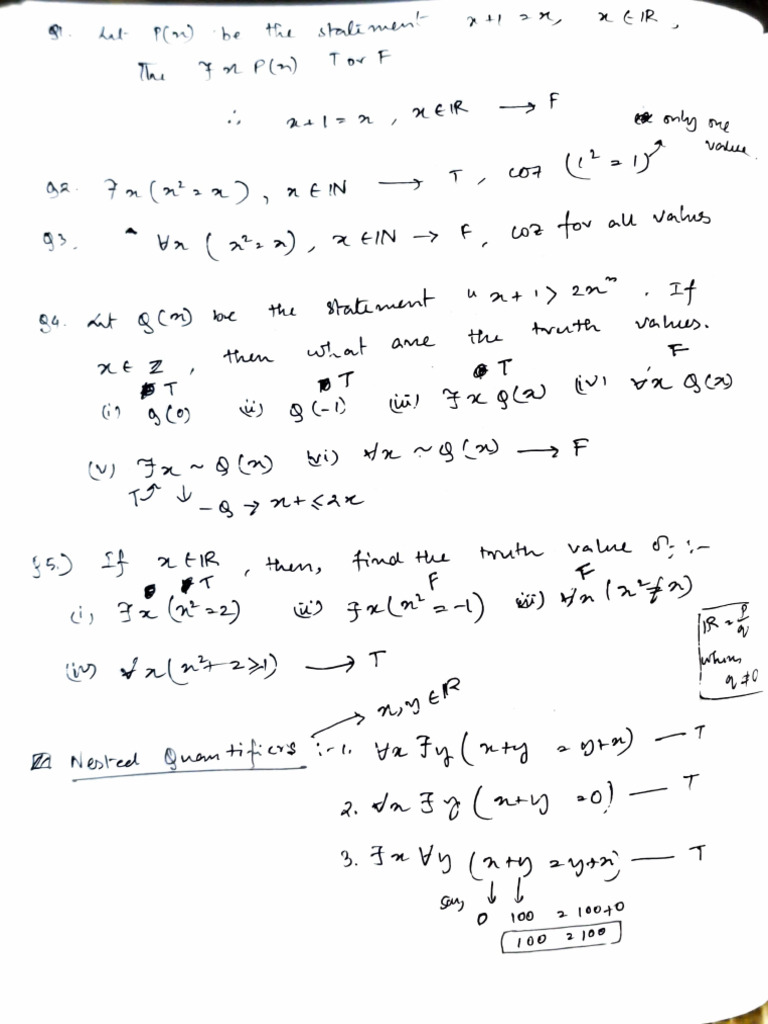 Q1. Let P(x) be the statement x+1 = x, x ∈ IR,
The ∃x P(x) T or F
∴ x+1 = x, x ∈ IR → F
only one value
Q2. ∃x (x² = x), x ∈ IN → T, coz (1² = 1)
Q3. ∀x (x² = x), x ∈ IN → F, coz for all values
Q4. Let Q(x) be the statement "x+1 > 2x". If
x ∈ Z, then what are the truth values.
T T T F
(i) Q(0) (ii) Q(-1) (iii) ∃x Q(x) (iv) ∀x Q(x)
(v) ∃x ~Q(x) (vi) ∀x ~Q(x) → F
T ↓ -Q → x+ ≤ 2x
Q5.) If x ∈ IR, then, find the truth value of :-
T F F
(i) ∃x (x² = 2) (ii) ∃x (x² = -1) (iii) ∀x (x² ≠ x)
IR = p/q
where
q ≠ 0
(iv) ∀x (x² + 2 ≥ 1) → T
x, y ∈ IR
Nested Quantifiers :- 1. ∀x ∃y (x+y = y+x) — T
2. ∀x ∃y (x+y = 0) — T
3. ∃x ∀y (x+y = y+x) — T
say ↓ ↓
0 100 = 100+0
100 = 100